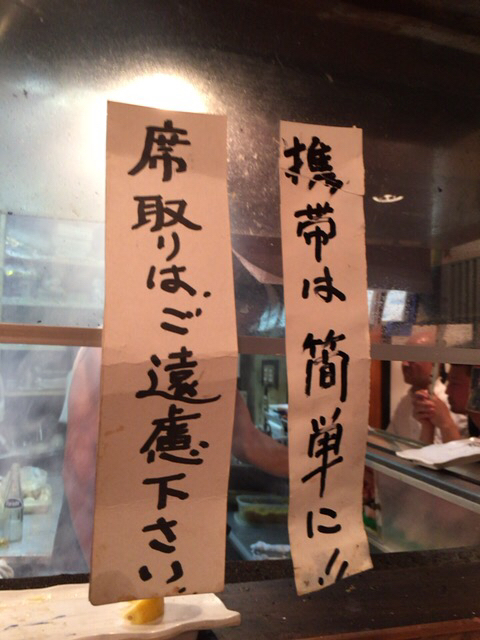 携帯は簡単に!!
席取りはご遠慮下さい